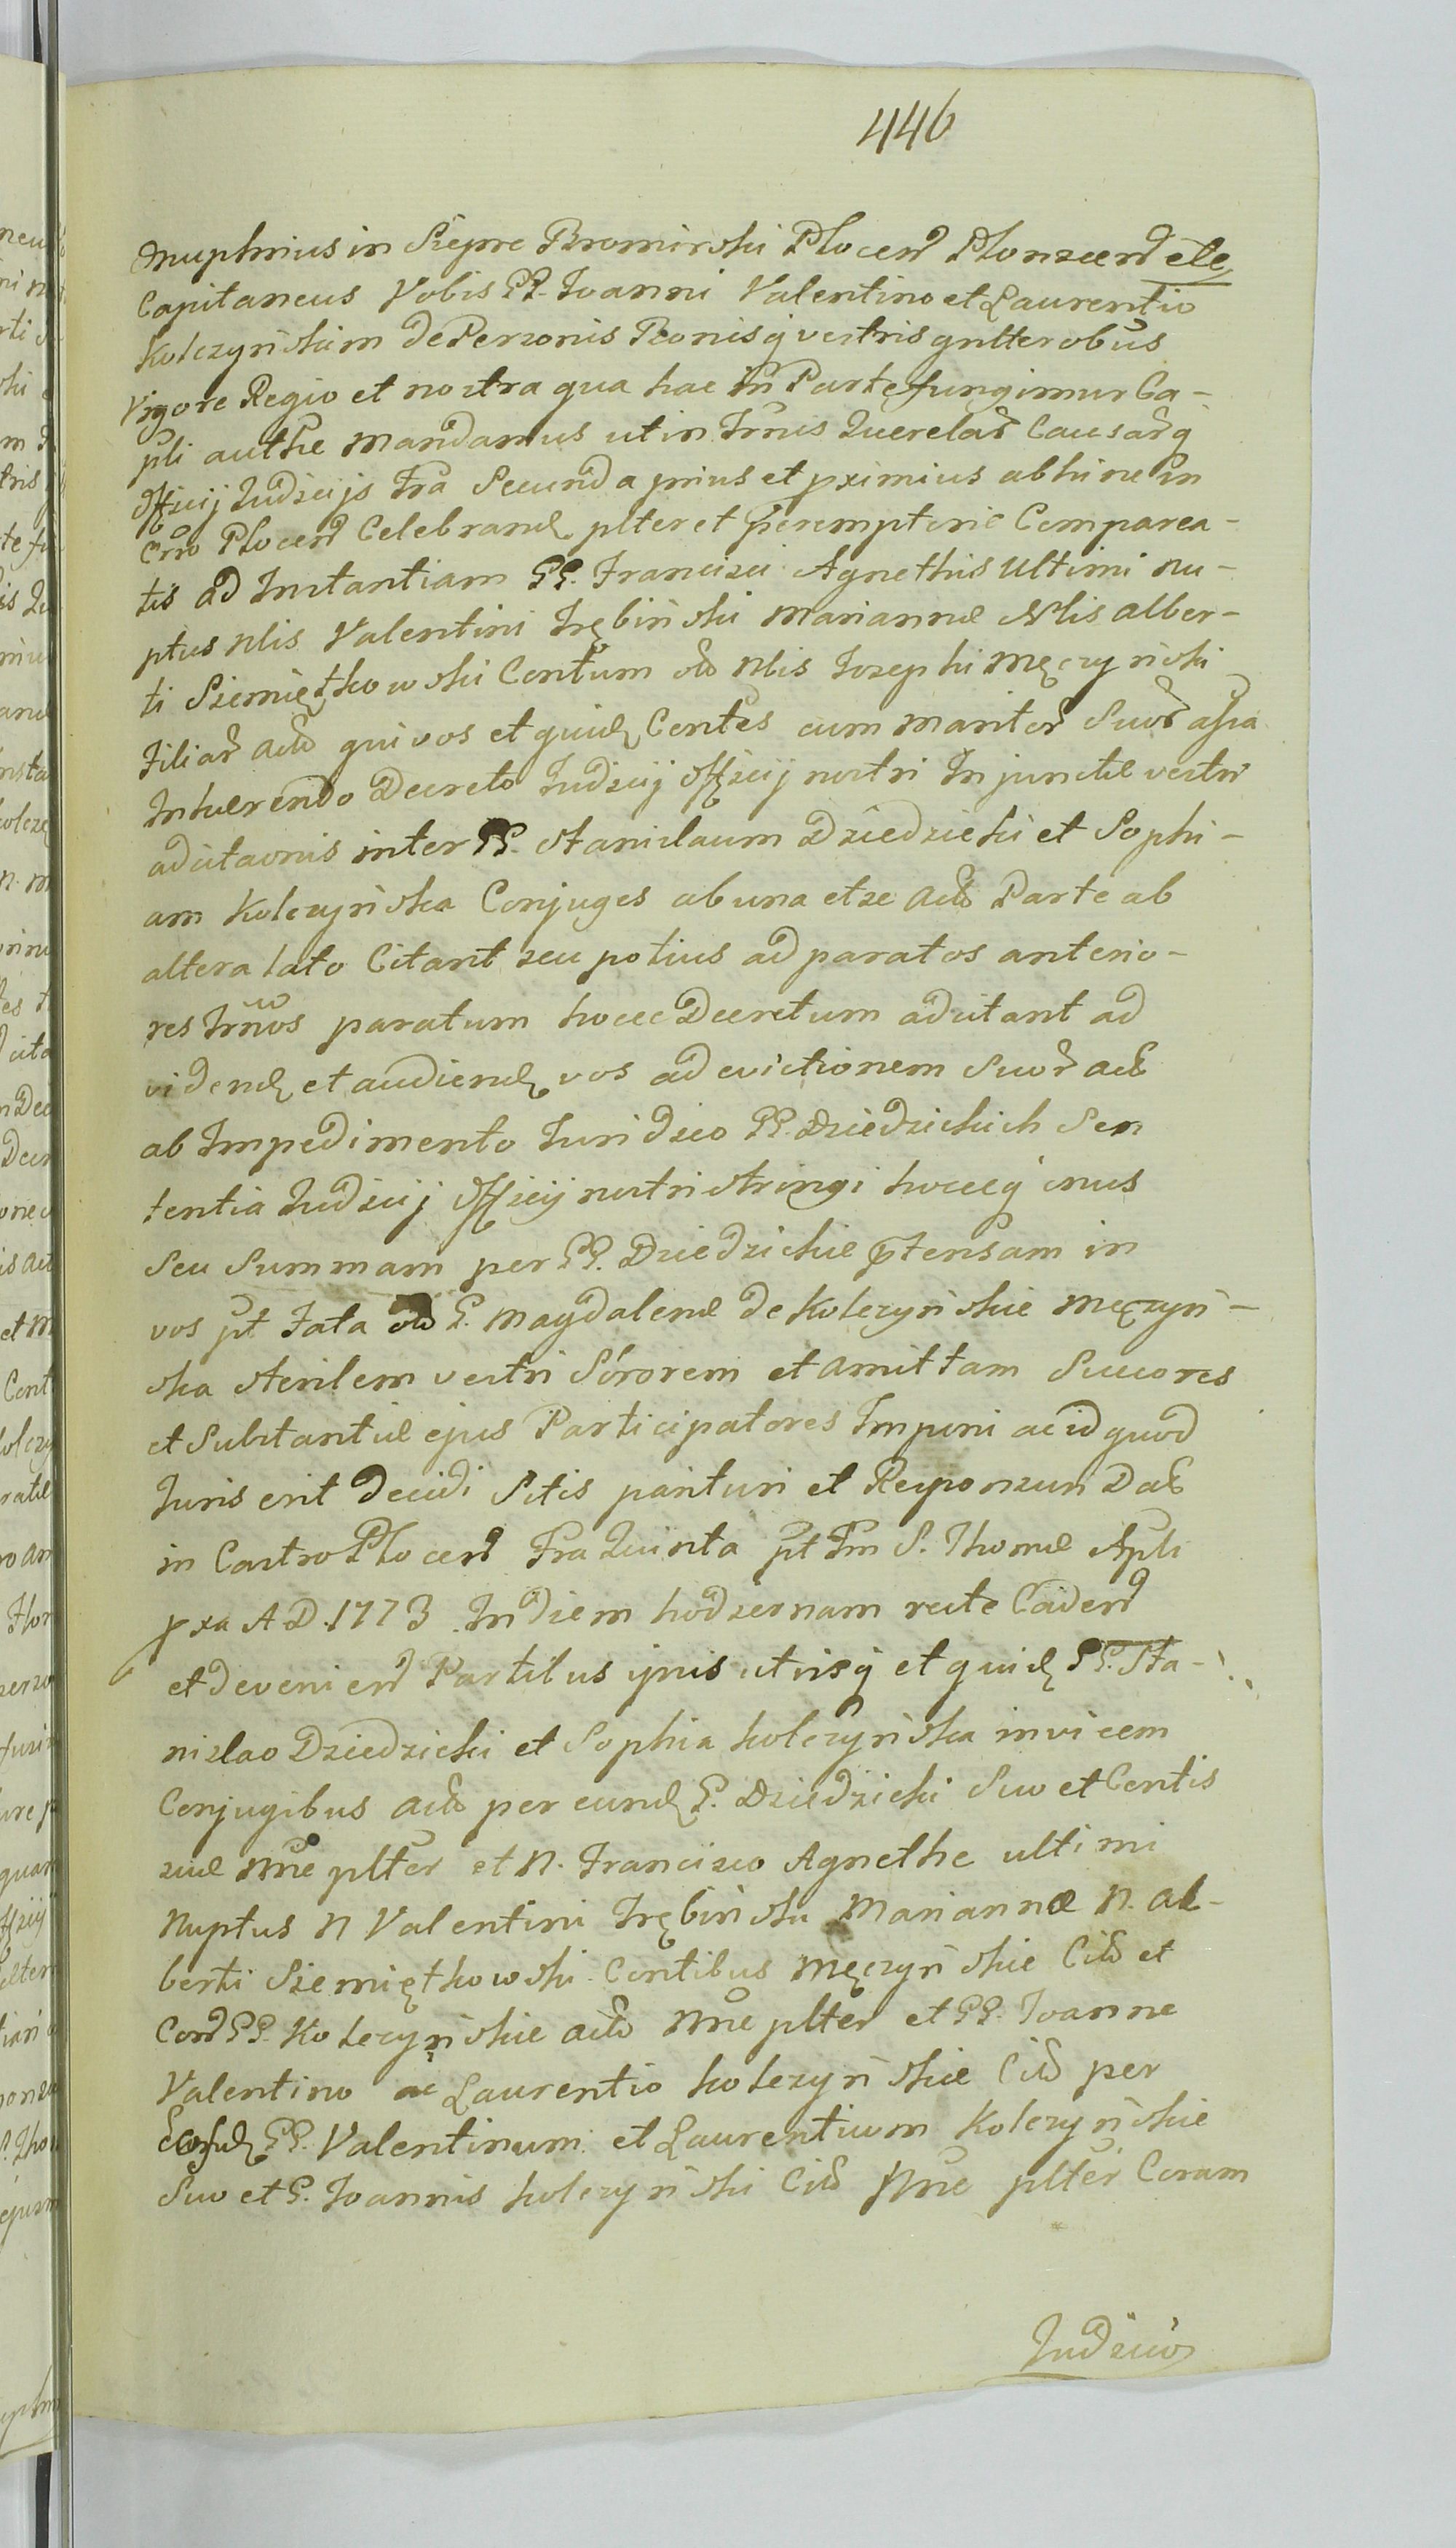 446
nuphrius in Siepre Bromirski Plocen Plonscen etc
Capitaneus Vobis PP. Joanni Valentino et Laurentio
Kolczynskim de Personis Bonisq vestris gnlter obus
Vigore Regio et nostra qua hac in Parte fungimur Ca-
pli authe Mandamus ut in Trnis Querelar Causarq
Officij Judicijs Fra Secunda prius et pximius abhinc in
Crro Plocen Celebrand plter et peremptorie Comparea-
tis ad Instantiam GG. Francisci Agnethis Ultimi nu-
ptus Nlis Valentini Trębinski Mariannæ Nlis Alber-
ti Siemiętkowski Contum olo Nlis Josephi Męczynski
Filiar Acto qui vos et quid Contes cum Maritor Suor assia
Inhærendo Decreto Judicij Officij nostri Injunctæ vestri
adcitaonis inter GG. Stanislaum Dziedzicki et Sophi-
am Kolczynska Conjuges ab una et se Acto Parte ab
altera lato Citant seu potius ad paratos anterio-
res Trnnos paratum hocce Decretum adcitant ad
vidend et audiend vos ad evictionem Suor act
ab Impedimento Juridico GG. Dziedzickich Sen
tentia Judicij Officij nostri stringi hocceq onus
Seu Summam per GG. Dziedzickie ptensam in
vos pt Fata olo G. Magdalenæ de Kolczynskie Męczyn-
ska sterilem vestri Sororem et amittam Succores
et Substantiæ ejus Participatores Imponi ac id quod
Juris erit decidi Sitis parituri et Responsuri Dat
in Castro Plocen Fra Quinta pt Fm S. Thomæ Apli
pxa A D. 1773. In diem hodiernam recte Caden
et devenien Partibus ipsis utrisq et quid GG. Sta-
nislao Dziedzicki et Sophia Kolczynska invicem
Conjugibus Acto per eund G. Dziedzicki Suo et Contis
suæ Nne plter et N. Francisco Agnethe ultimi
Nuptus N Valentini Trębinski Marianna N. Al-
berti Siemiętkowski Contibus Męczynskie Cito et
Con GG. Kolczynskie Acto Nne plter et GG. Joanne
Valentino ac Laurentio Kolczynskie Cito per
eosd GG. Valentinum et Laurentium Kolczynskie
Suo et G. Joannis Kolczynski Cito Nne plter Coram
Judicio